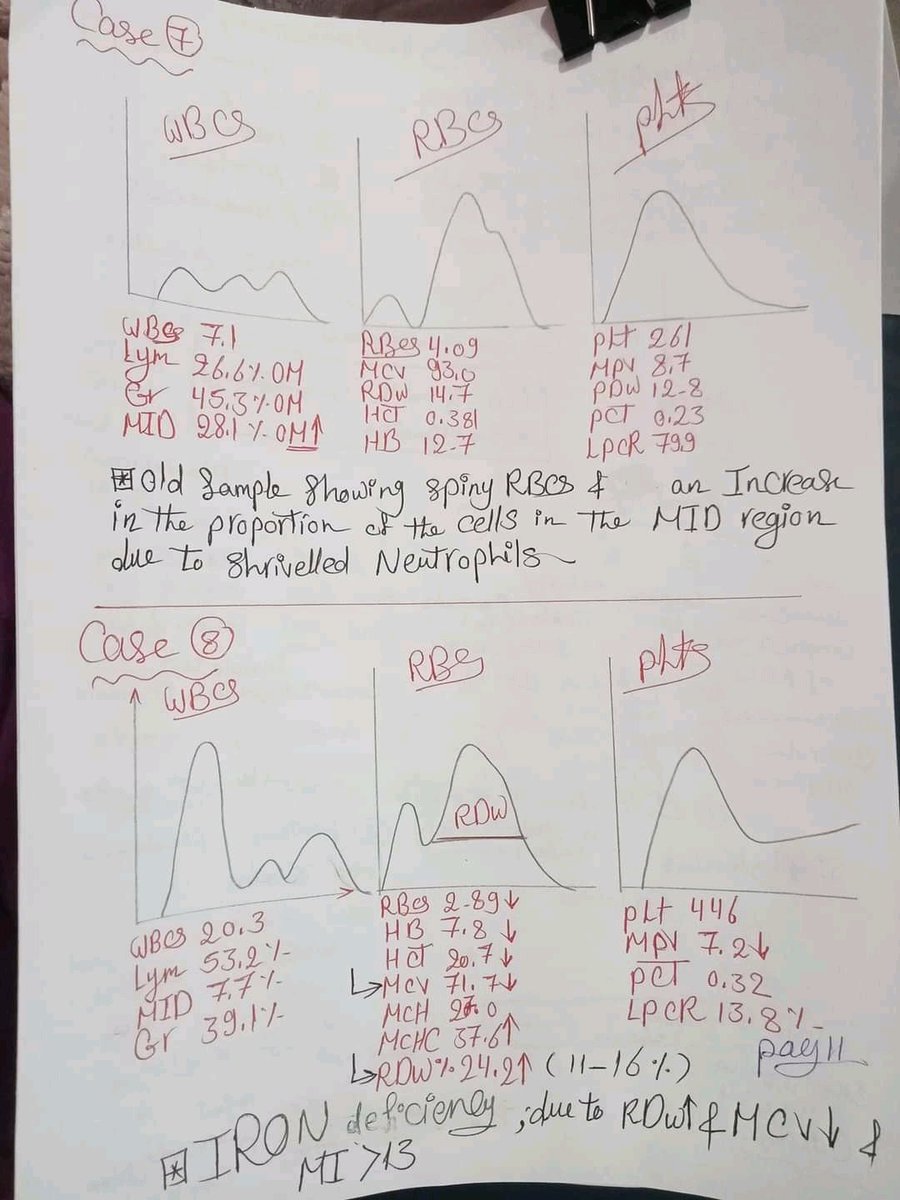 Case 7
WBCs
RBCs
plts
WBCs 7.1
Lym 26.6% OM
Gr 45.3% OM
MID 28.1% OM↑
RBCs 4.09
MCV 93.0
RDW 14.7
HCT 0.381
HB 12.7
plt 261
MPV 8.7
PDW 12-8
PCT 0.23
LPCR 799
Old Sample showing spiny RBCs & an Increase
in the proportion of the cells in the MID region
due to Shrivelled Neutrophils
Case 8
WBCs
RBCs
plts
RDW
WBCs 20.3
Lym 53.2%
MID 7.7%
Gr 39.1%
RBCs 2-89↓
HB 7.8 ↓
HCT 20.7↓
↳MCV 71.7↓
MCH
MCHC 37.6↑
↳RDW% 24.2↑ (11-16%)
plt 446
MPV 7.2↓
PCT 0.32
LPCR 13.8%
IRON deficiency ; due to RDW↑ & MCV↓ &
MI >13